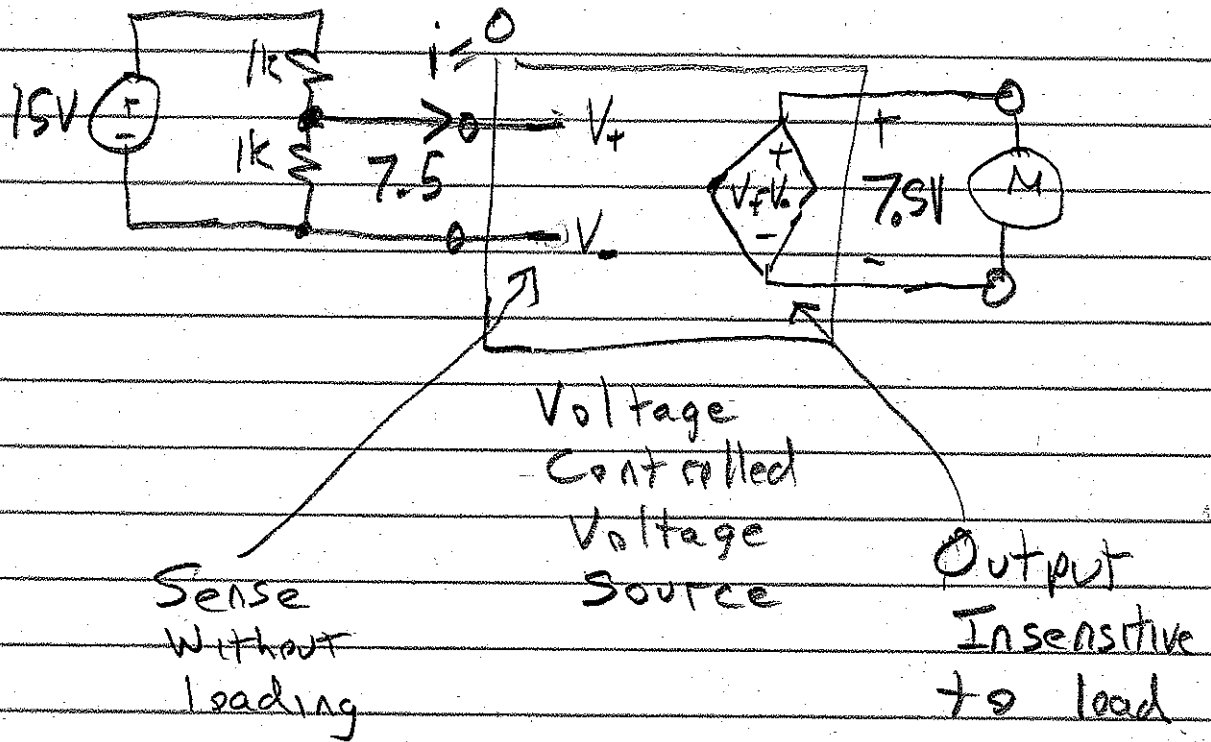 i=0
1k
15V
+
-
1k
7.5
V+
V-
+
V+V-
-
+
7.5V
-
M
Voltage
Controlled
Voltage
Source
Sense
Without
loading
Output
Insensitive
to load